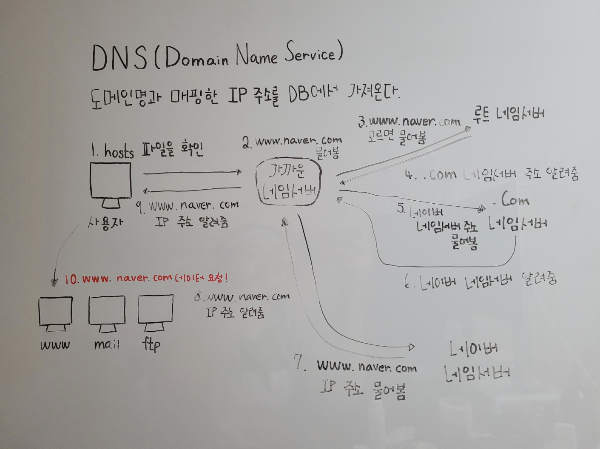 DNS (Domain Name Service)
도메인명과 매핑한 IP 주소를 DB에서 가져온다.
1. hosts 파일을 확인
사용자
2. www.naver.com
물어봄
가까운
네임서버
3. www.naver.com
모르면 물어봄
루트 네임서버
4. .com 네임서버 주소 알려줌
.Com
네임서버
5. 네이버
네임서버 주소
물어봄
6. 네이버 네임서버 알려줌
7. www.naver.com
IP 주소 물어봄
네이버
네임서버
8. www.naver.com
IP 주소 알려줌
9. www.naver.com
IP 주소 알려줌
10. www.naver.com 데이터 요청!
www
mail
ftp